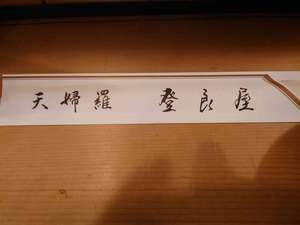 天婦羅 登良屋